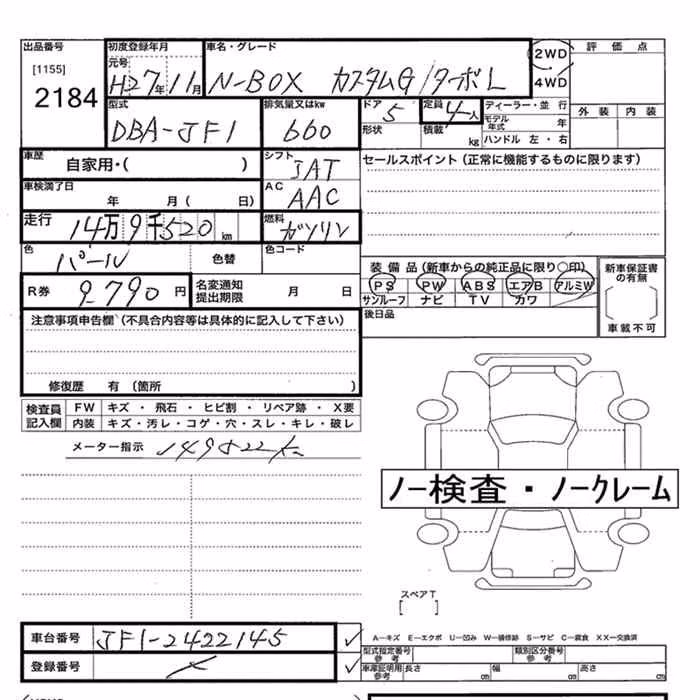 出品番号 初度登録年月 車名・グレード 2WD 評価点
[1155] 元号
2184 H27年11月 N-BOX カスタムG/ターボL 4WD 外装 内装
型式 排気量又はkw ドア 5 定員 4人 ディーラー・並行
DBA-JF1 660 形状 積載 kg モデル年式 年
ハンドル 左・右
車歴 自家用・( ) シフト IAT セールスポイント(正常に機能するものに限ります)
車検満了日 年 月( 日) AC AAC
走行 14万9千520km 燃料 ガソリン
色 パール 色替 色コード
装備品(新車からの純正品に限り○印) 新車保証書の有無
R券 9790円 名変通知提出期限 月 日 PS PW ABS エアB アルミW
サンルーフ ナビ TV カワ
車載不可
注意事項申告欄(不具合内容等は具体的に記入して下さい) 後日品
修復歴 有(箇所 )
検査員記入欄 FW キズ・飛石・ヒビ割・リペア跡・X要
内装 キズ・汚レ・コゲ・穴・スレ・キレ・破レ
メーター指示 149522km
ノー検査・ノークレーム
スペアT
[ ]
車台番号 JF1-2422145 A−キズ E−エクボ U−凹み W−補修跡 S−サビ C−腐食 XX−交換済
型式指定番号 参考 類別区分番号 参考
登録番号 車庫証明用 参考 長さ cm 幅 cm 高さ cm